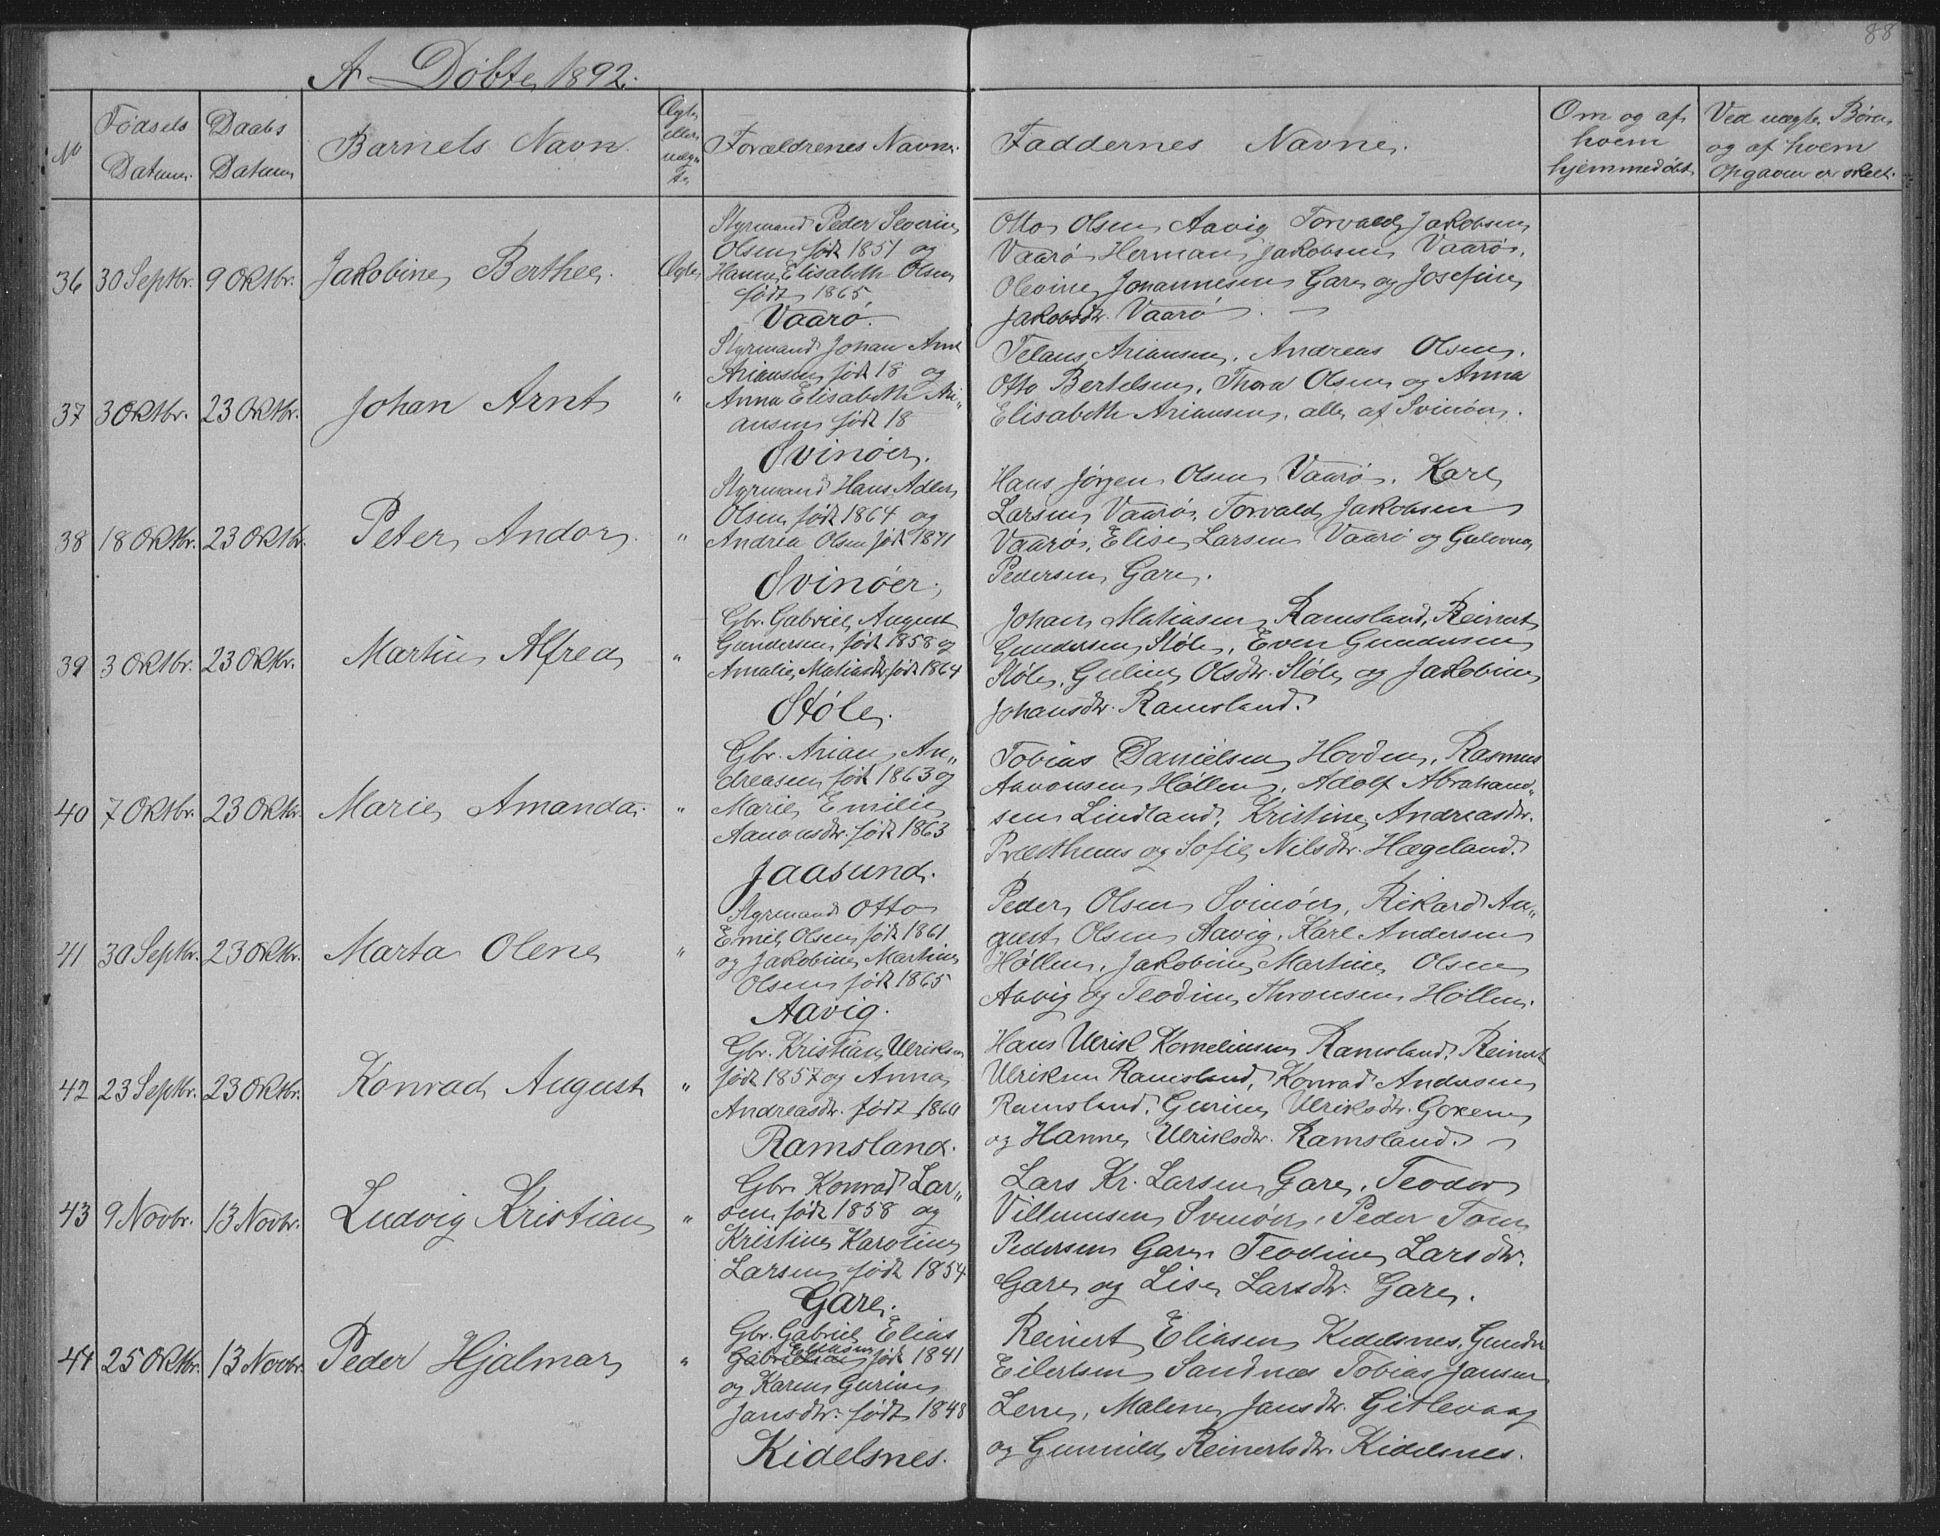 88
A. Döbte, 1892.
No
Fødsels Datum.
Daabs Datum
Barnets Navn.
Ægte eller uægte
Forældrenes Navne.
Faddernes Navne.
Om og af hvem hjemmedøbt.
Ved uægte Børn og af hvem Opgaven er skeet.
36 30 Septbr. 9 Oktbr. Jakobine Berthee. Ægte
Styrmand Peder Severin
Olsen født 1851 og
Hanne Elisabeth Olsen
født 1865
Vaarø.
Otto Olsen Aavig Torvald Jakobsen
Vaarø Herman Jakobsen Vaarø.
Olevine Johannesen Gare og Josefine
Jakobsdtr. Vaarø. —
37 3 Oktbr. 23 Oktbr. Johan Arnt "
Styrmand Johan Arnt
Ariansen født 18 og
Anna Elisabeth Ari„
ansen født 18
Svinøer.
Telaus Ariansen, Andreas Olsen.
Otto Bertelsen, Thora Olsen og Anna
Elisabeth Ariansen, alle af Svinøer.
38 18 Oktbr. 23 Oktbr. Peter Andor. "
Styrmand Hans Adler
Olsen født 1864 og
Andrea Olsen født 1871
Svinöer,
Hans Jørgen Olsen Vaarø, Karl
Larsen Vaarø, Torvald Jakobsen
Vaarø, Elise Larsen Vaarø og
Pedersen Gare.
39 3 Oktbr. 23 Oktbr. Martin Alfred "
Gbr. Gabriel August
Gundersen født 1858 og
Amalie Matiasdtr født 1864
Støle.
Johan Matiasen Ramsland, Reinert
Gundersen Støle, Even Gundersen
Støle, Guline Olsdtr. Støle og Jakobine
Johansdtr. Ramsland.
40 7 Oktbr. 23 Oktbr. Marie Amanda. "
Gbr. Arian An„
dreasen født 1863 og
Marie Emilie
Aanonsdtr. født 1863
Jaasund.
Tobias Danielsen Hovden, Rasmus
Aanonsen Høllen, Adolf Abraham„
sen Lindland, Kristine Andreasdtr.
Præsthuus og Sofie Nilsdtr. Hægeland.
41 30 Septbr. 23 Oktbr. Marta Olene "
Styrmand Otto
Emil Olsen født 1861
og Jakobine Martine
Olsen født 1865
Aavig.
Peder Olsen Svinöer, Rikard Au„
gust Olsen Aavig, Karl Andersen
Høllen, Jakobine Martine Olsen
Aavig og Teodine Thronsen Høllen.
42 23 Septbr. 23 Oktbr. Konrad August "
Gbr. Kristian Ulriksen
født 1857 og Anna
Andreasdtr. født 1860
Ramsland.
Hans Ulrik Korneliusen Ramsland, Reinert
Ulriksen Ramsland, Konrad Andersen
Ramsland, Gurine Ulriksdtr.
og Hanne Ulriksdtr. Ramsland. —
43 9 Novbr. 13 Novbr. Ludvig Kristian "
Gbr. Konrad Lar„
sen født 1858 og
Kristine Karoline
Larsen født 1854
Gare.
Lars Kr. Larsen Gare, Teodor
Villumsen Svinöer, Peder Tom
Pedersen Gare, Teodine Larsdtr.
Gare og Lise Larsdtr. Gare.
44 25 Oktbr. 13 Novbr. Peder Hjalmar "
Gbr. Gabriel Elias
Eliassen
Gabrielsen født 1841
og Karen Gurine
Jansdtr. født 1848
Kidelsnes.
Reinert Eliasen Kidelsnes, Gunder
Eilertsen Sandnæs Tobias Jansen
Lerre, Malene Jansdtr. Gitlevaag
og Gunvild Reinertsdtr. Kidelsnes.